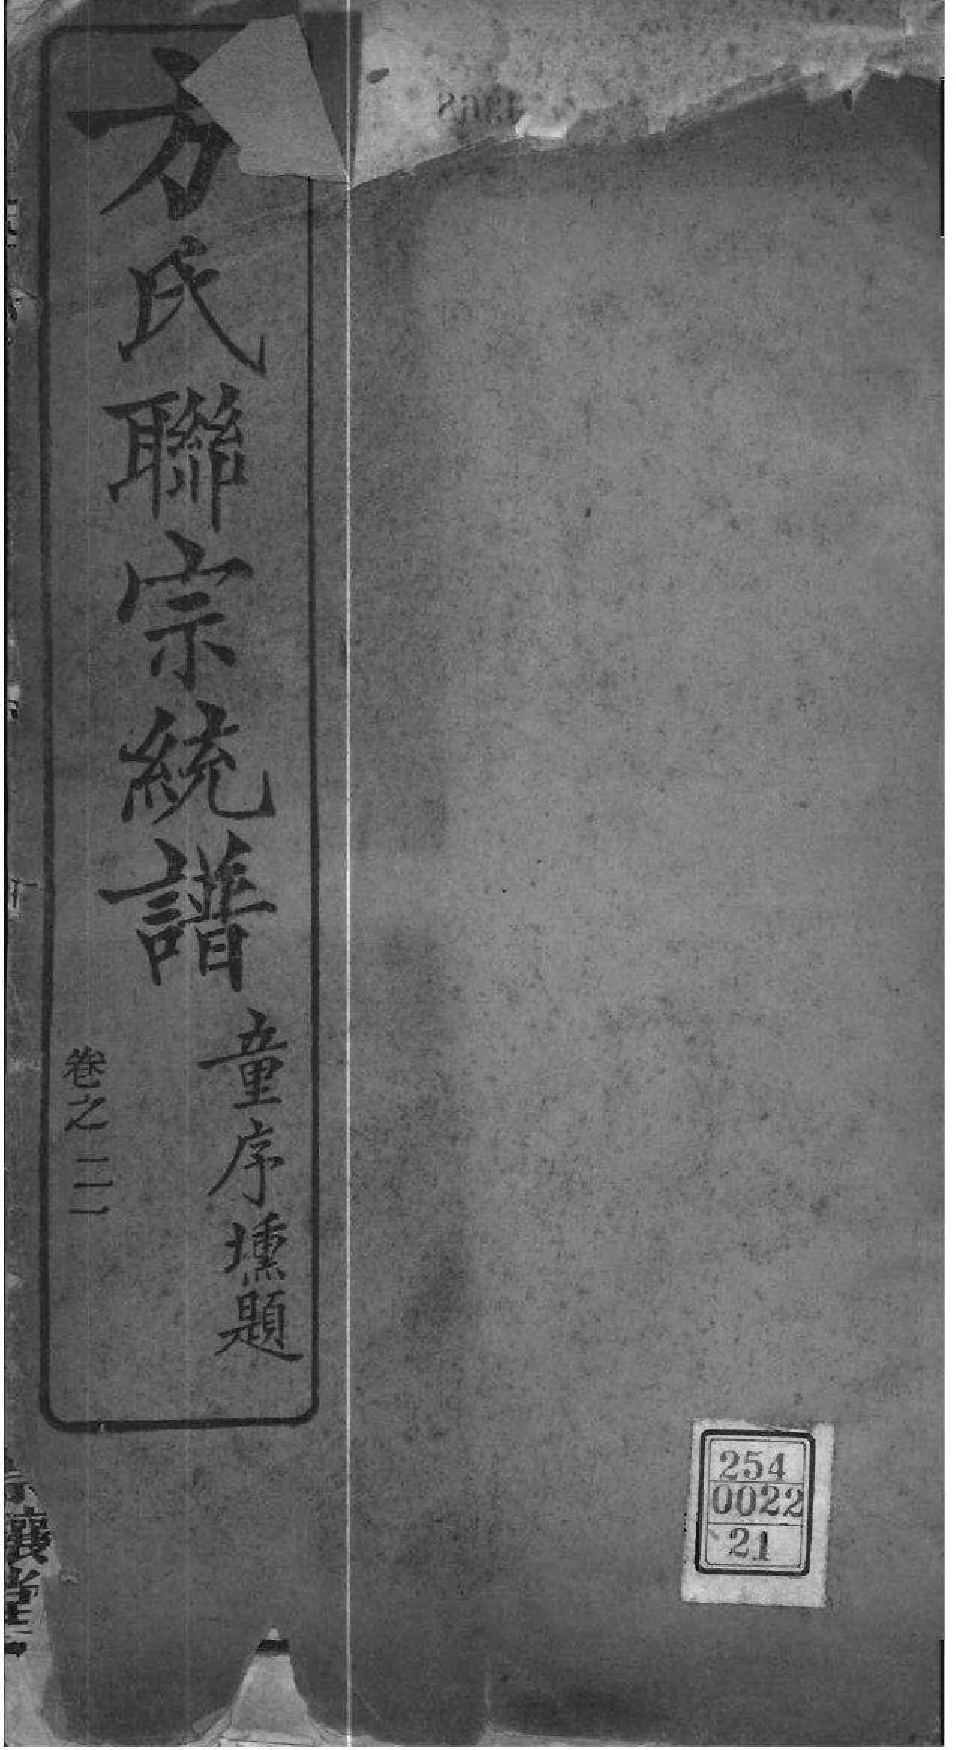 方氏聯宗統譜
童序壎題
卷之二一
254
0022
21